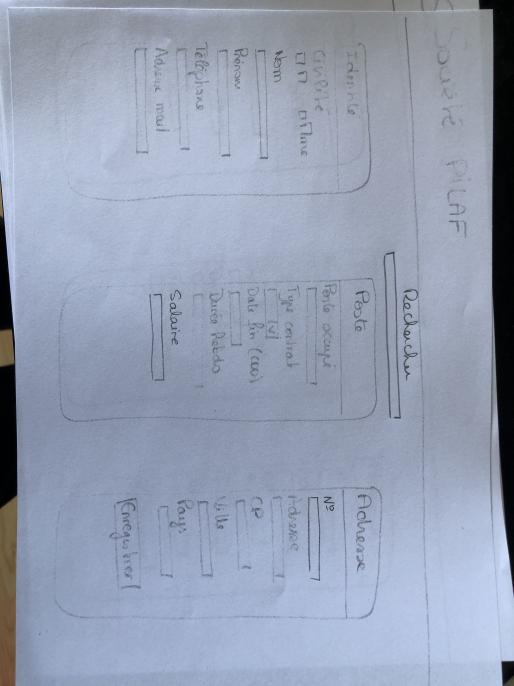 Société PILAF
Rechercher
Identité
Civilité
M Mme
Nom
Prénom
Téléphone
Adresse mail
Poste
Poste occupé
Type contrat
Date fin (CDD)
Durée Hebdo
Salaire
Adresse
N°
Adresse
CP
Ville
Pays
Enregistrer